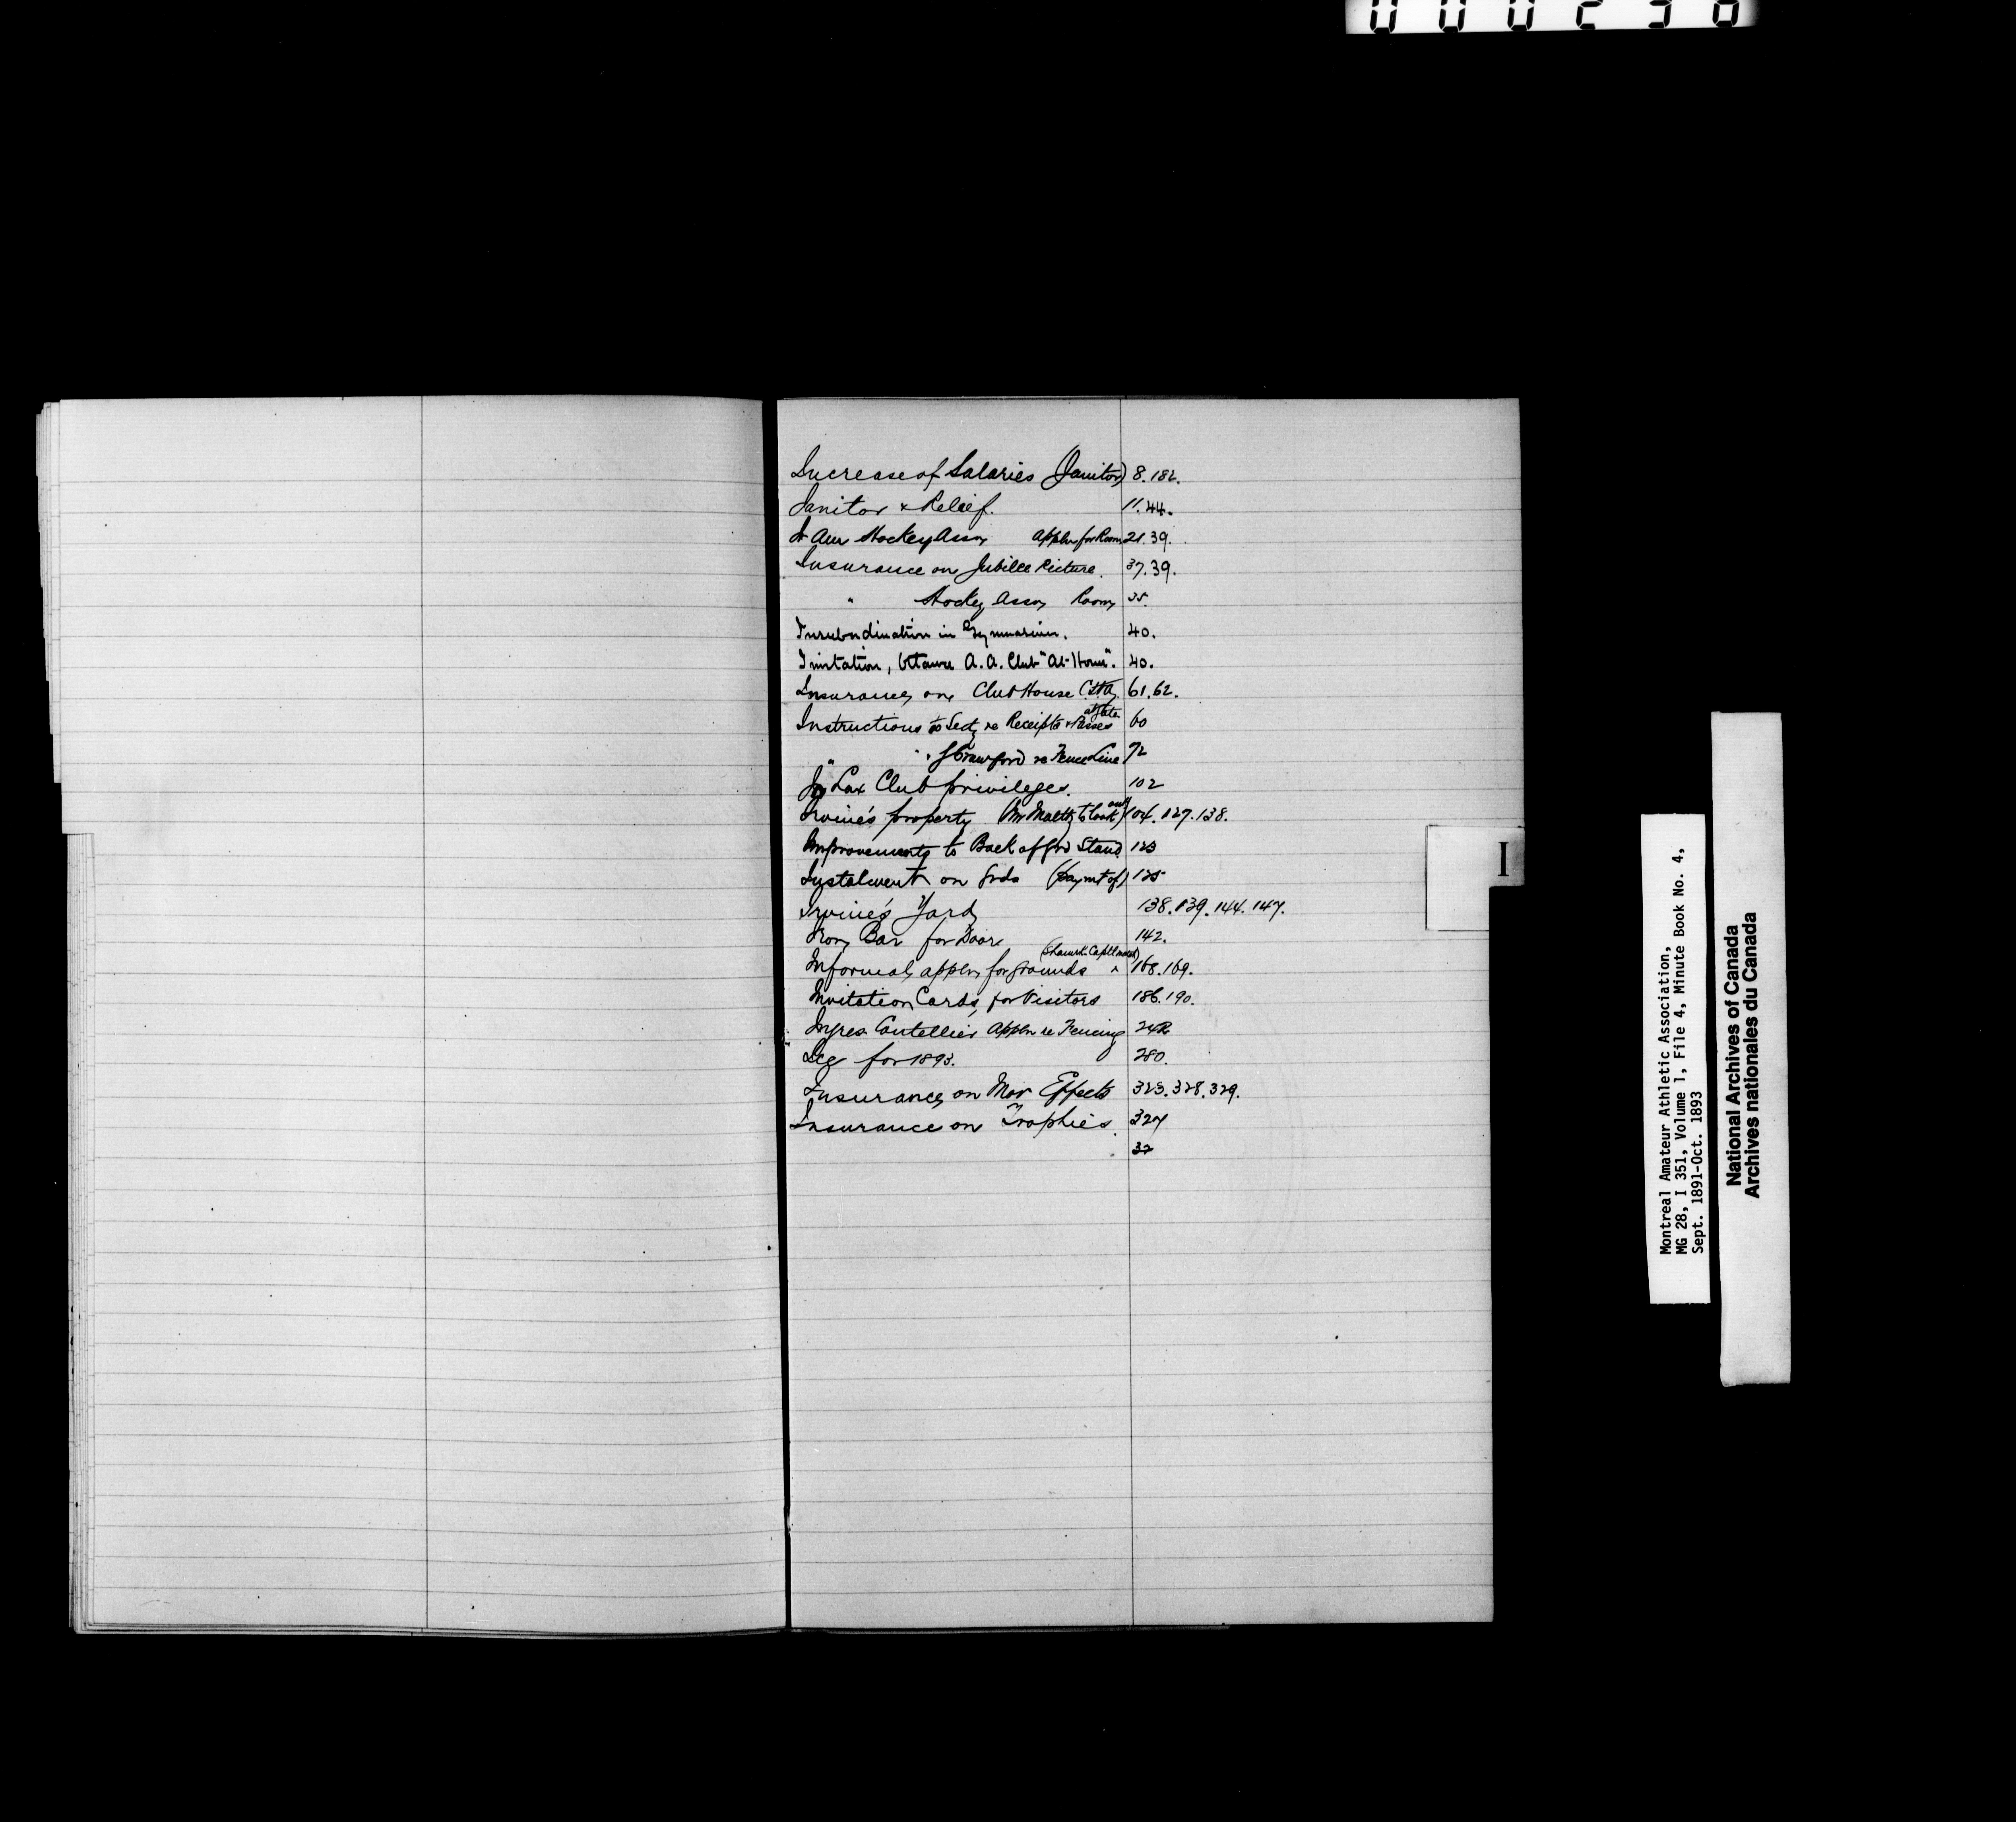 000238
Increase of Salaries (Janitor) 8.182.
Janitor & Relief. 11.44.
Hockey Assn Appln for Room 21.39.
Insurance on Jubilee Picture. 37.39.
" Hockey Assn Room 35.
Insubordination in Gymnasium. 40.
Invitation, Ottawa A.A. Club "At-Home". 40.
Insurance on Club House 61.62.
Instructions to Secty re Receipts & Passes at Gate 60
" " J Crawford re Fence Line 72
Lax Club privileges. 102
Irvine's property (Mr Maltby to look out) 104.127.138.
Improvements to Back of Grd Stand 123
Instalment on Grds (paymt of) 125
Irvine's Yard 138.139.144.147.
Iron Bar for Door 142.
Informal appln for Grounds (Shamk Captl match) 168.169.
Invitation Cards for Visitors 186.190.
Ingres Coutellier Appln re Fencing 242
Ice for 1893. 280.
Insurance on Mov Effects 323.328.329.
Insurance on Trophies. 327
32
I
Montreal Amateur Athletic Association,
MG 28, I 351, Volume 1, File 4, Minute Book No. 4,
Sept. 1891-Oct. 1893
National Archives of Canada
Archives nationales du Canada